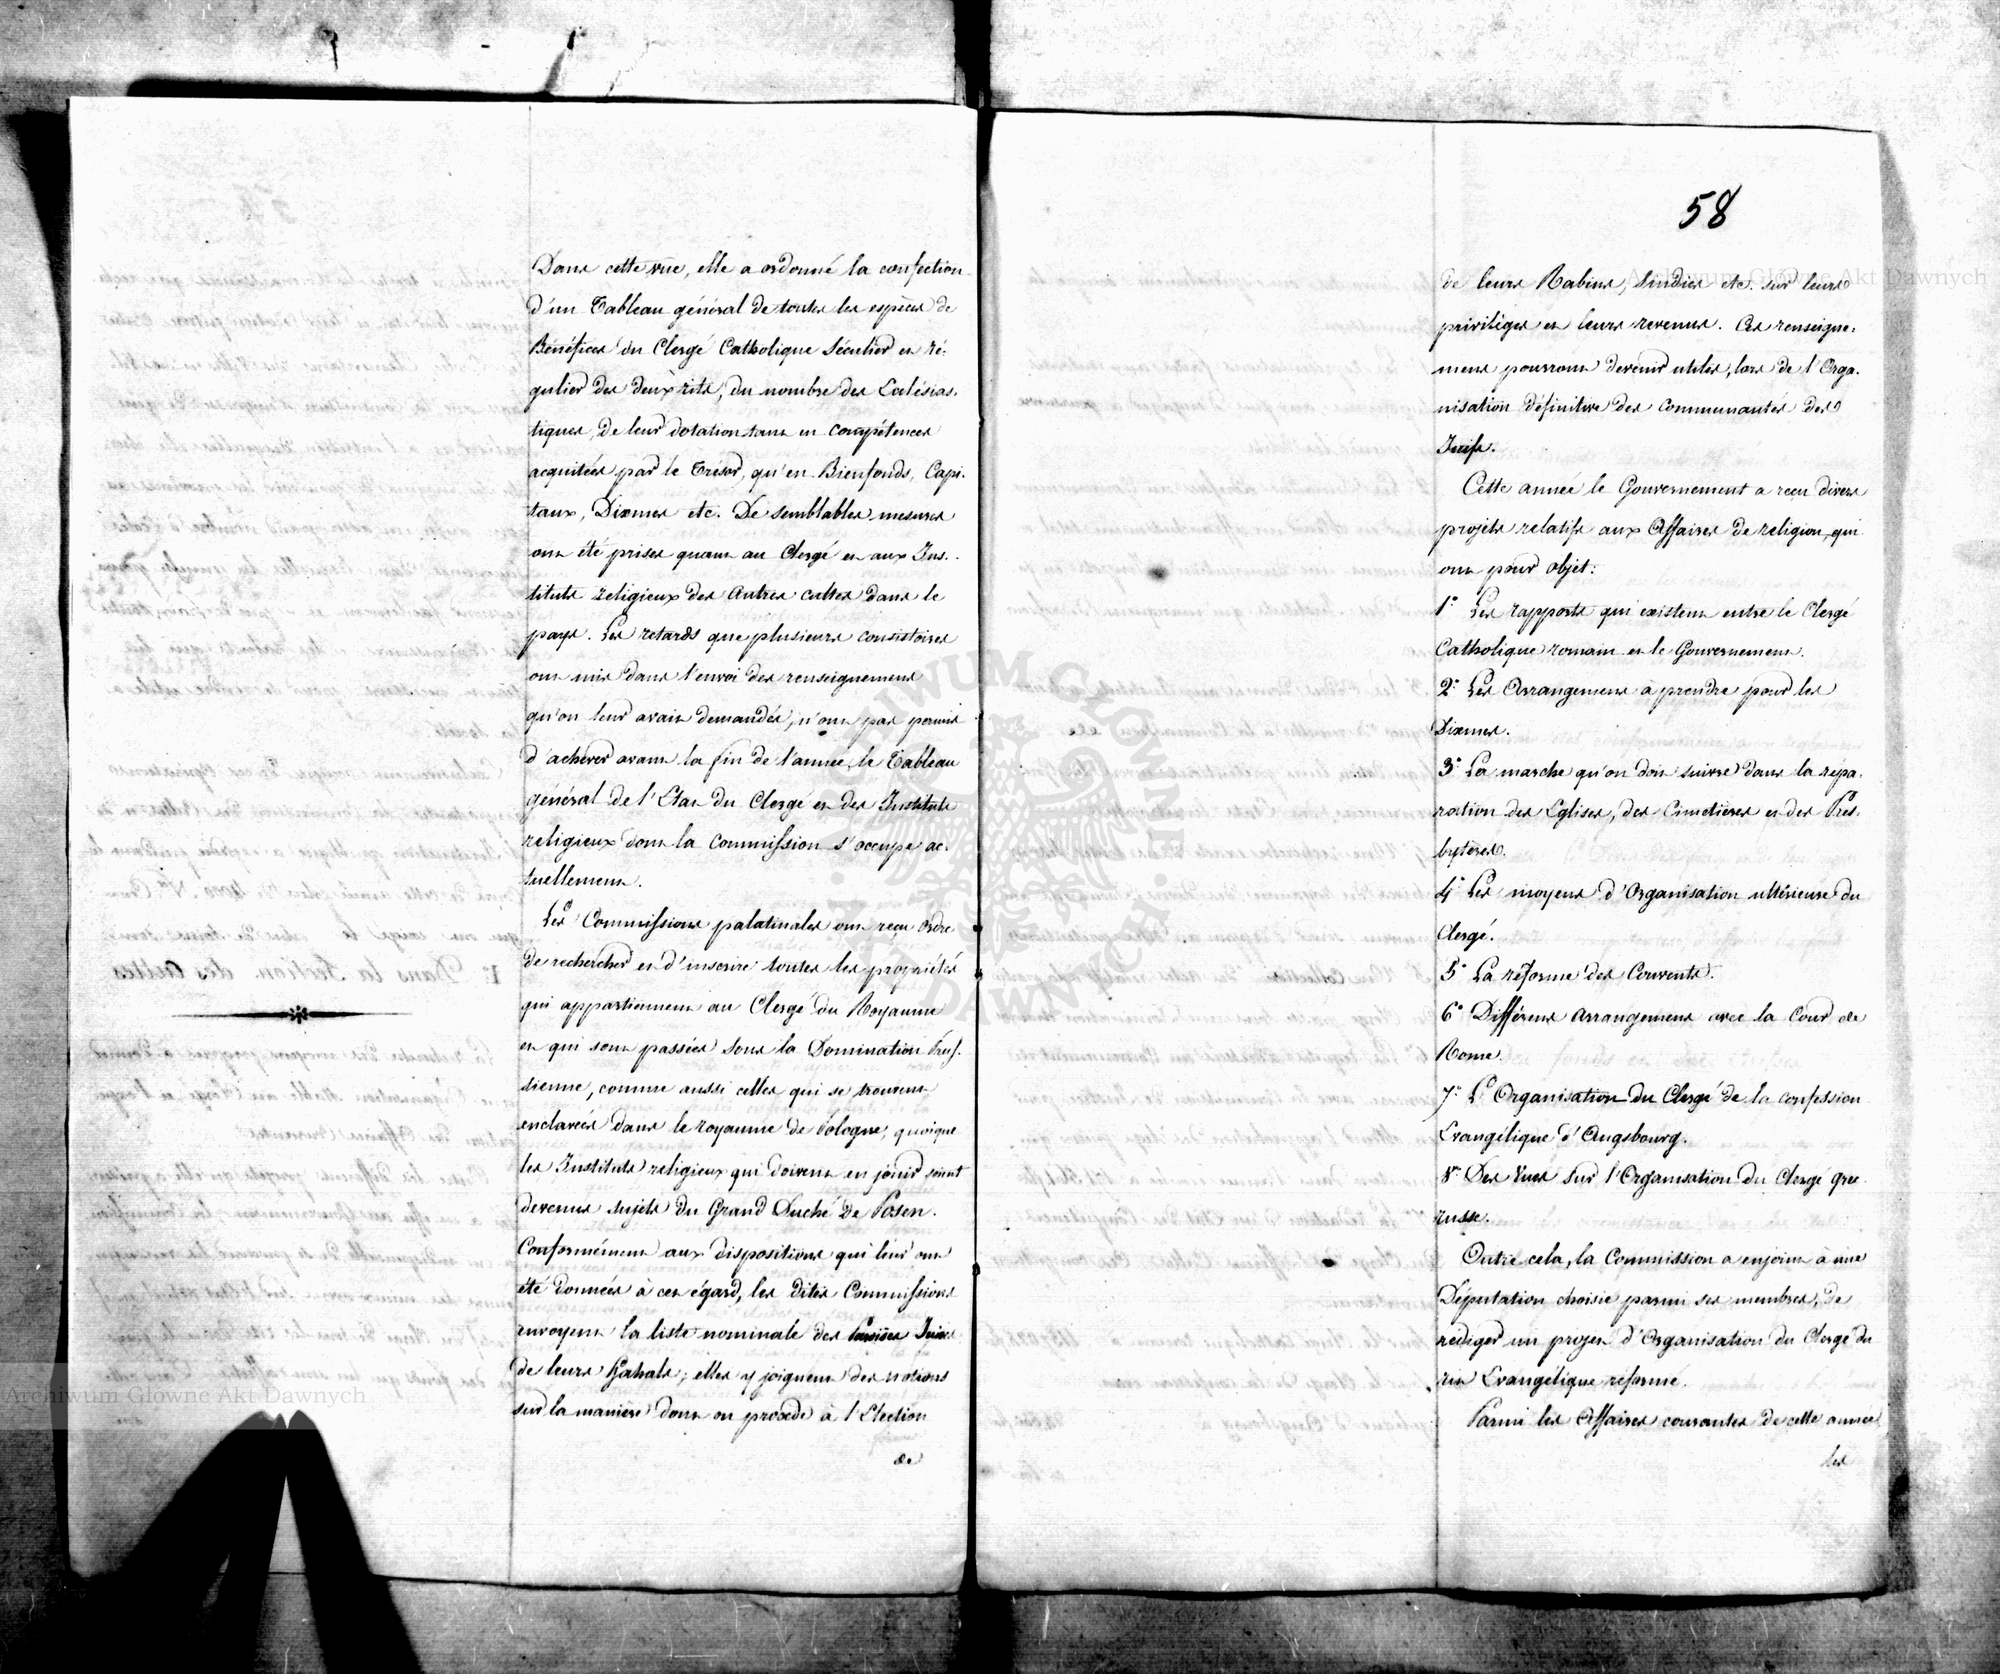 Dans cette vüe, elle a ordonné la confection
d'un Tableau général de toutes les espèces de
Bénéfices du Clergé Catholique Séculier et ré-
gulier des deux rits, du nombre des Ecclésias-
tiques, de leur dotation tant en compétences
acquitées par le Trésor, qu'en Bienfonds, Capi-
taux, Dixmes etc. De semblables mesures
ont été prises quant au Clergé et aux Ins-
tituts religieux des autres cultes dans le
pays. Les retards que plusieurs consistoires
ont mis dans l'envoi des renseignemens
qu'on leur avait demandés, n'ont pas permis
d'achever avant la fin de l'année, le Tableau
général de l'Etat du Clergé et des Instituts
religieux dont la Commission s'occupe ac-
tuellement.
Les Commissions palatinales ont reçu ordre
de rechercher et d'inscrire toutes les propriétés
qui appartiennent au Clergé du Royaume
et qui sont passées sous la Domination Prus-
sienne, comme aussi celles qui se trouvent
enclavées dans le royaume de Pologne, quoique
les Instituts religieux qui doivent en jouir soient
devenus sujets du Grand Duché de Posen.
Conformément aux dispositions qui leur ont
été données à cet égard, les dites Commissions
envoyent la liste nominale des Juives
de leurs Kahals; elles y joignent des notions
sur la manière dont on procède à l'Election
de
58
de leurs Rabins, Sindics etc. sur leurs
privilèges et leurs revenus. Ces renseigne-
mens pourront devenir utiles, lors de l'Orga-
nisation définitive des communautés des
Juifs.
Cette année le Gouvernement a reçu divers
projets relatifs aux Affaires de religion, qui
ont pour objet:
1° Les rapports qui existent entre le Clergé
Catholique romain et le Gouvernement.
2° Les Arrangemens à prendre pour les
Dixmes.
3° La marche qu'on doit suivre dans la répa-
ration des Eglises, des Cimetières et des Pres-
bytères.
4° Les moyens d'Organisation ultérieure du
Clergé.
5° La réforme des Couvents.
6° Différens arrangemens avec la Cour de
Rome.
7° L'Organisation du Clergé de la confession
Evangélique d'Augsbourg.
8° Des vues sur l'Organisation du Clergé grec
russe.
Outre cela, la Commission a enjoint à une
Députation choisie parmi ses membres, de
rédiger un projet d'Organisation du Clergé du
rit Evangélique réformé.
Parmi les Affaires courantes de cette année
les
Archiwum Główne Akt Dawnych
Archiwum Główne Akt Dawnych
ARCHIWUM GŁÓWNE AKT DAWNYCH